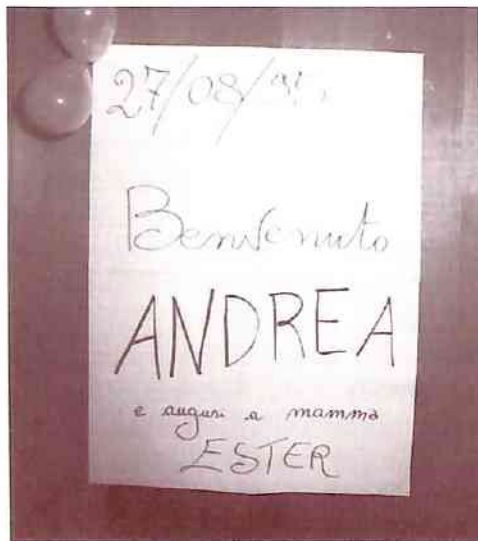 27/08/
Benvenuto
ANDREA
e auguri a mamma
ESTER